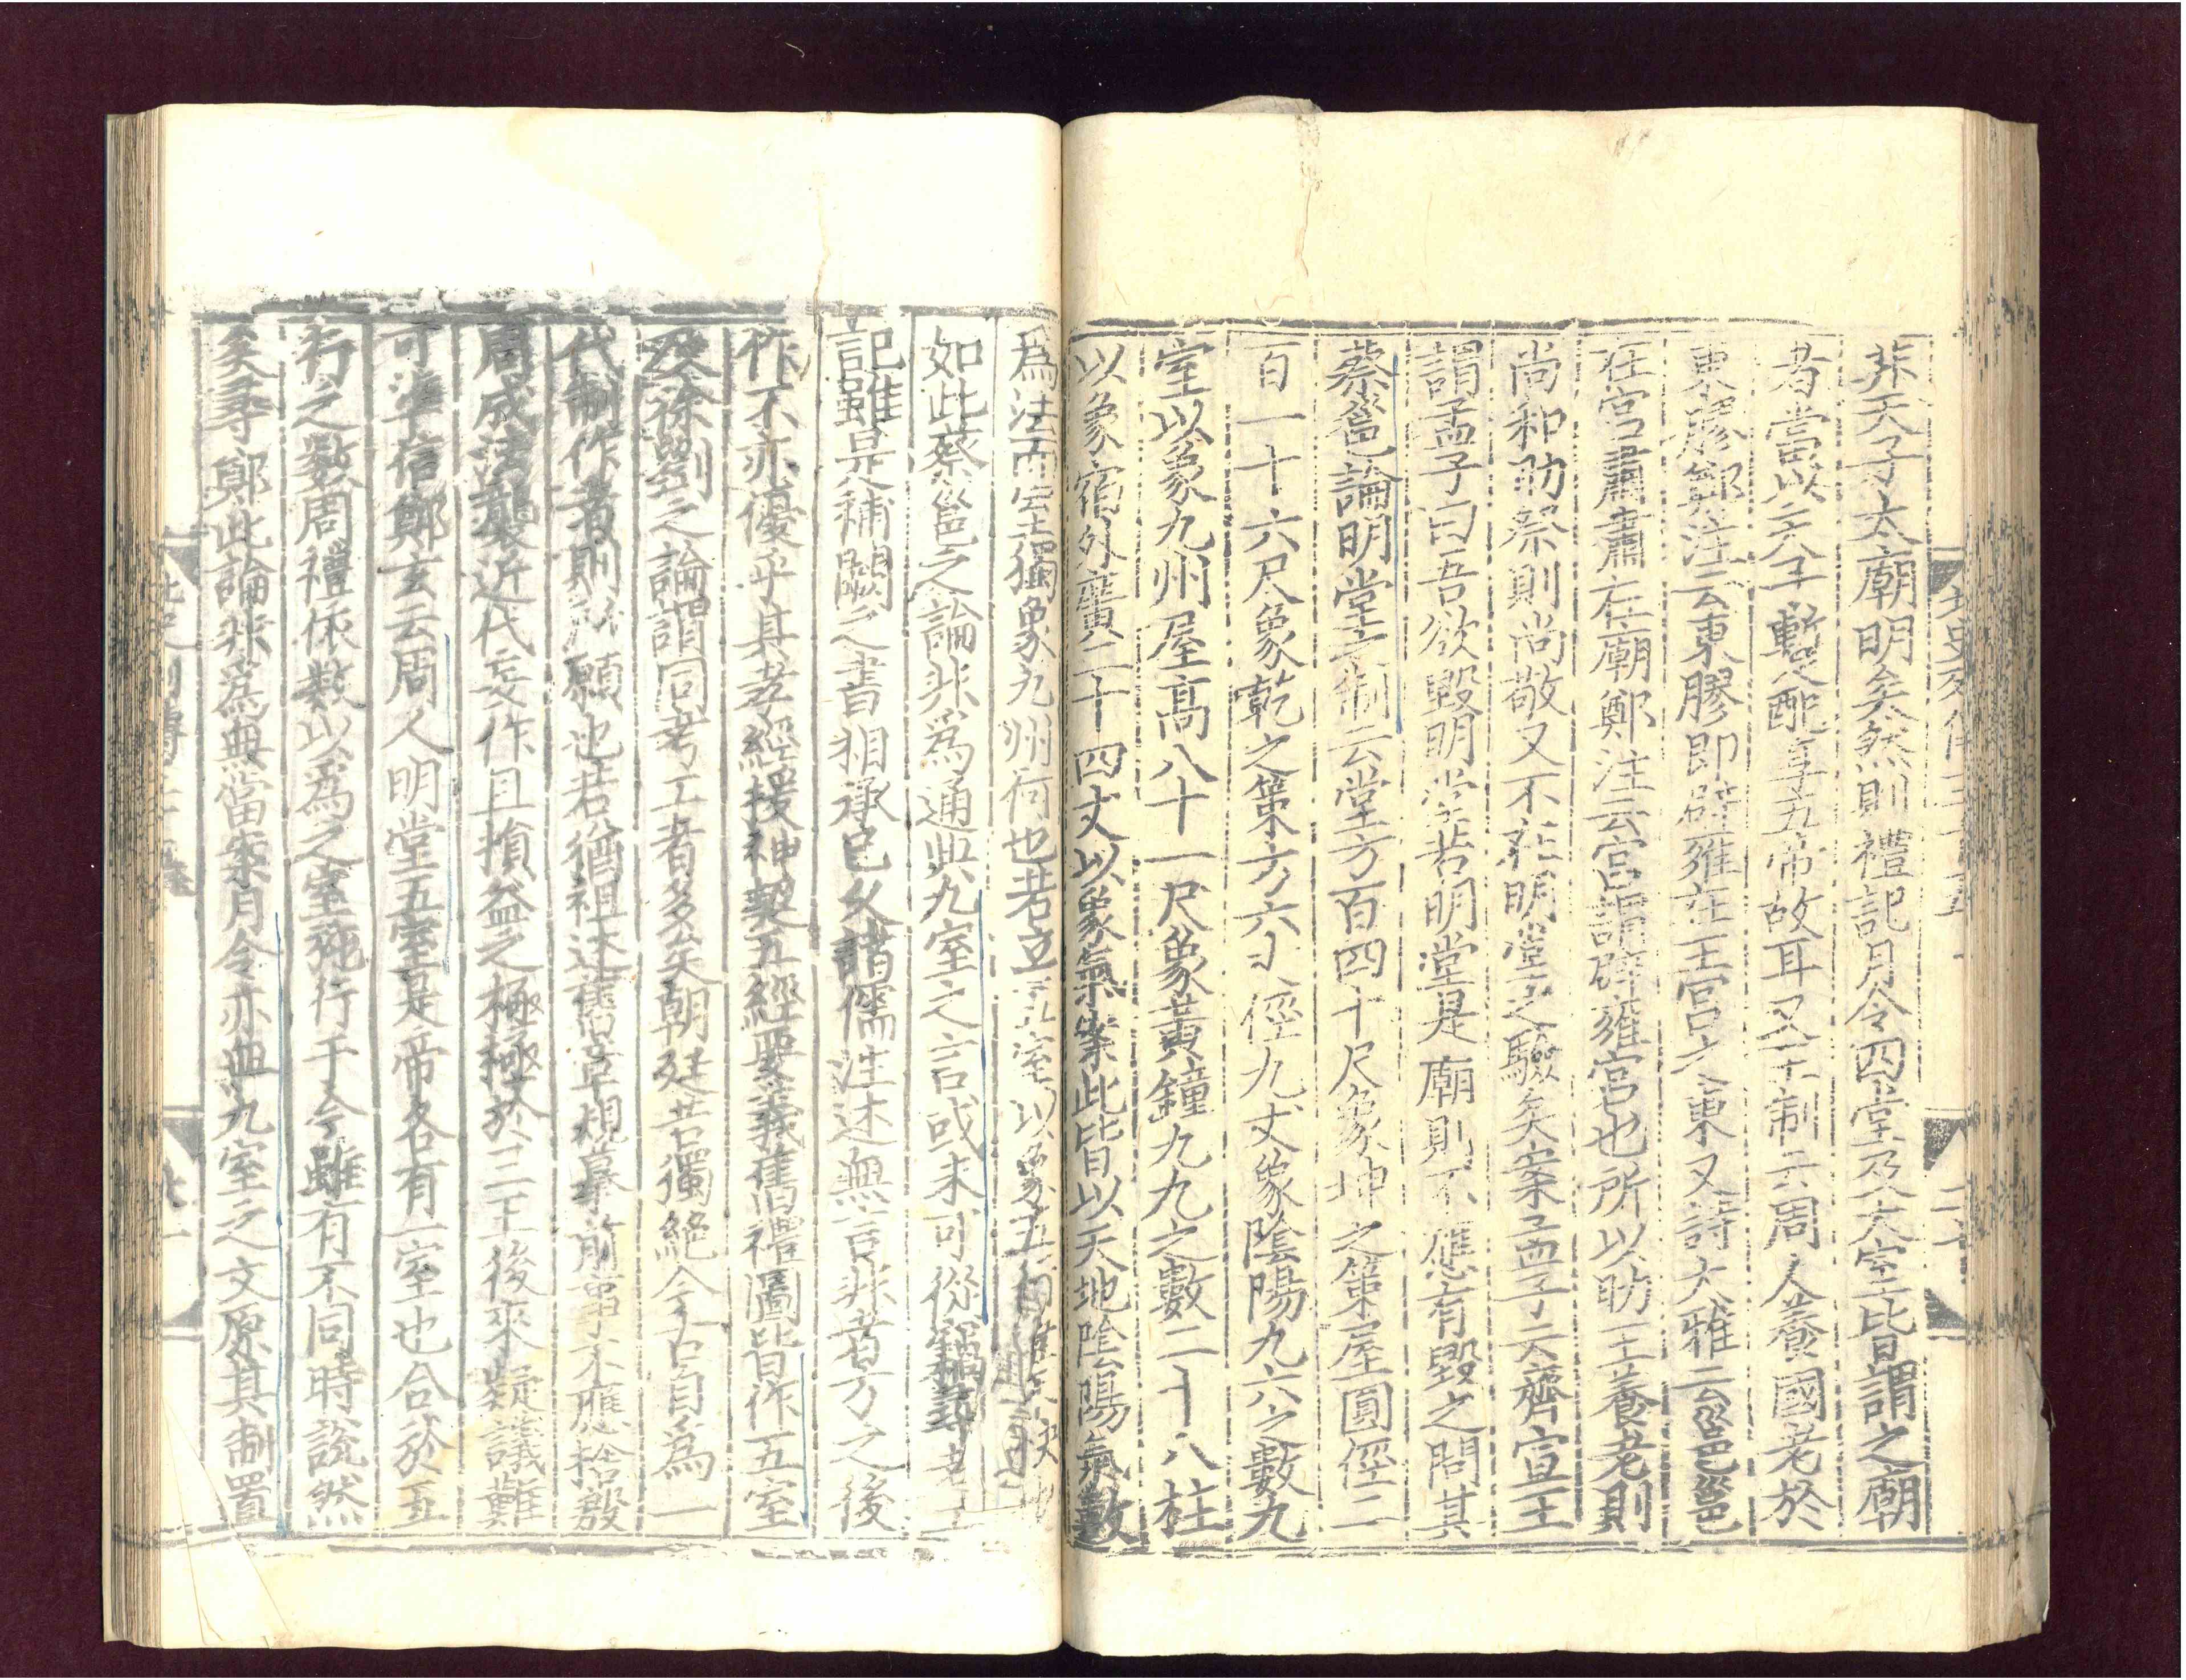 非天子太廟明矣然則禮記月令四堂及大室皆謂之廟
者當以天子暫配享五帝故耳又王制云周人養國老於
東膠鄭注云東膠即辟雍在王宮之東又詩大雅云邕邕
在宮肅肅在廟鄭注云宮謂辟雍宮也所以助王養老則
尚和助祭則尚敬又不在明堂之驗矣案孟子云齊宣王
謂孟子曰吾欲毀明堂若明堂是廟則不應有毀之問其
蔡邕論明堂之制云堂方百四十尺象坤之策屋圓徑二
百一十六尺象乾之策方六丈徑九丈象陰陽九六之數九
室以象九州屋高八十一尺象黃鐘九九之數二十八柱
以象宿外廣二十四丈以象氣案此皆以天地陰陽氣數
爲法而室獨象九州何也若立五室以象五行
如此蔡邕之論非爲通典九室之言或未可從竊尋考工
記雖是補闕之書相承已久諸儒注述無言非者方之後
作不亦優乎其孝經援神契五經要義舊禮圖皆作五室
及徐劉之論謂同考工者多矣朝廷若獨絕今古自爲一
代制作者則所願也若猶祖述舊章規摹前事不應捨殷
周成法襲近代妄作且損益之極極於三王後來疑議難
可準信鄭玄云周人明堂五室是帝各有一室也合於五
行之數周禮依數以爲之室施行于今雖有不同時說然
矣尋鄭此論非爲無當案月令亦無九室之文原其制置